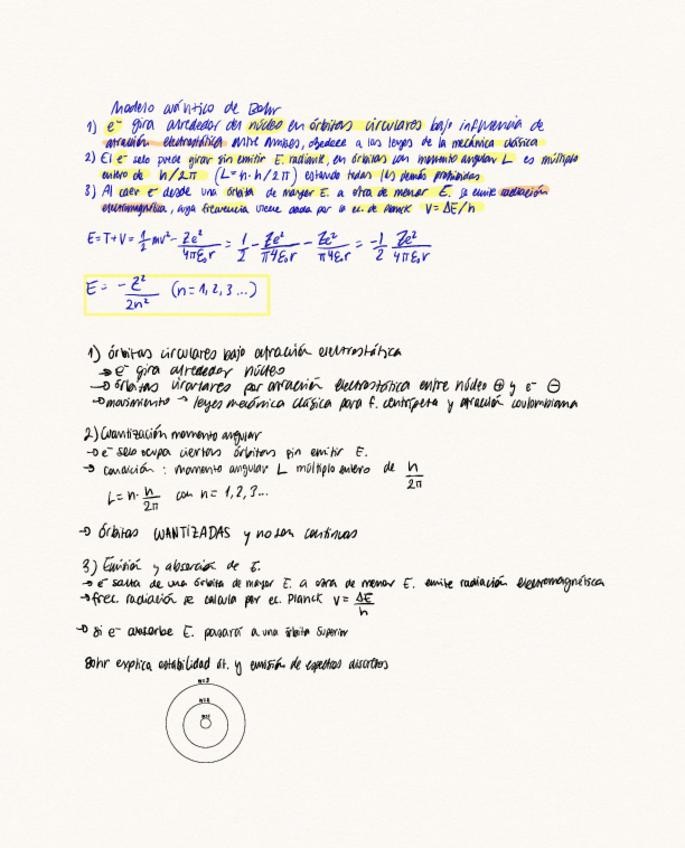 Modelo cuántico de Bohr
1) e⁻ gira alrededor del núcleo en órbitas circulares bajo influencia de
atracción electrostática entre ambos, obedece a las leyes de la mecánica clásica
2) El e⁻ solo puede girar sin emitir E. radiante, en órbitas con momento angular L es múltiplo
entero de h/2π (L=n·h/2π) estando todas las demás prohibidas
3) Al caer e⁻ desde una órbita de mayor E. a otra de menor E. se emite radiación
electromagnética, cuya frecuencia viene dada por la ec. de Planck ν=ΔE/h
E=T+V= 1/2 mv² - Ze²/4πε₀r = 1/2 - Ze²/π4ε₀r - Ze²/π4ε₀r = -1/2 Ze²/4πε₀r
E= -Z²/2n² (n=1,2,3...)
1) órbitas circulares bajo atracción electrostática
→ e⁻ gira alrededor núcleo
→ órbitas circulares por atracción electrostática entre núcleo ⊕ y e⁻ ⊖
→ movimiento → leyes mecánica clásica para f. centrípeta y atracción coulombiana
2) Cuantización momento angular
→ e⁻ solo ocupa ciertas órbitas sin emitir E.
→ condición: momento angular L múltiplo entero de h/2π
L=n·h/2π con n=1,2,3...
→ órbitas CUANTIZADAS y no son continuas
3) Emisión y absorción de E.
→ e⁻ salta de una órbita de mayor E. a otra de menor E. emite radiación electromagnética
→ frec. radiación se calcula por ec. Planck ν=ΔE/h
→ si e⁻ absorbe E. pasará a una órbita superior
Bohr explica estabilidad át. y emisión de espectros discretos
n=3
n=2
n=1